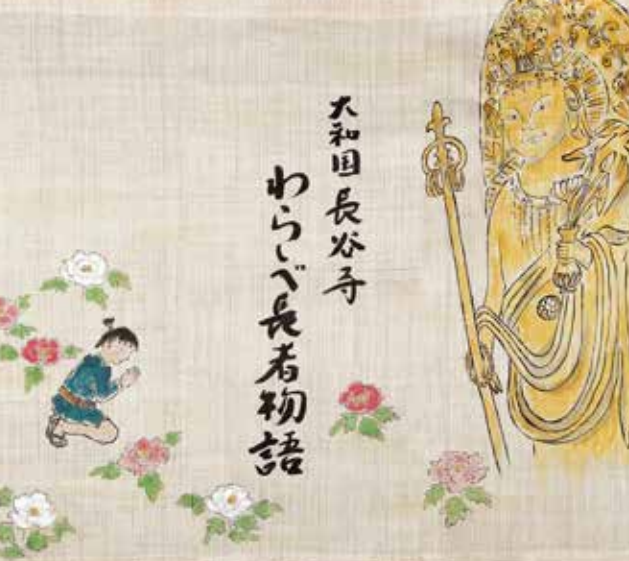 大和国長谷寺
わらしべ長者物語